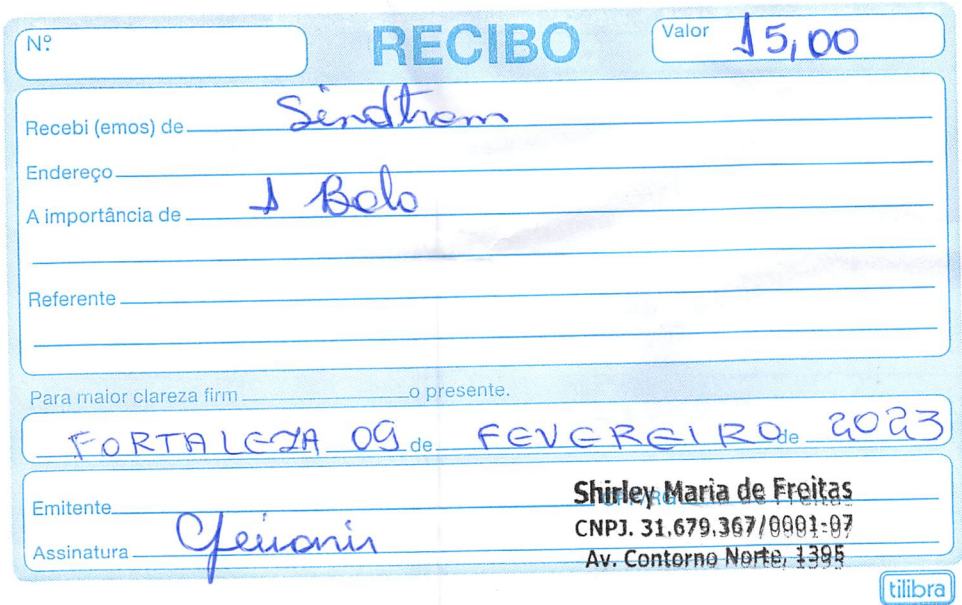 Nº RECIBO Valor 15,00
Recebi (emos) de Sindtram
Endereço
A importância de 1 Bolo
Referente
Para maior clareza firm o presente.
FORTALEZA 09 de FEVEREIRO de 2023
Emitente
Shirley Maria de Freitas
CNPJ. 31.679.367/0001-07
Assinatura
Av. Contorno Norte, 1395
tilibra